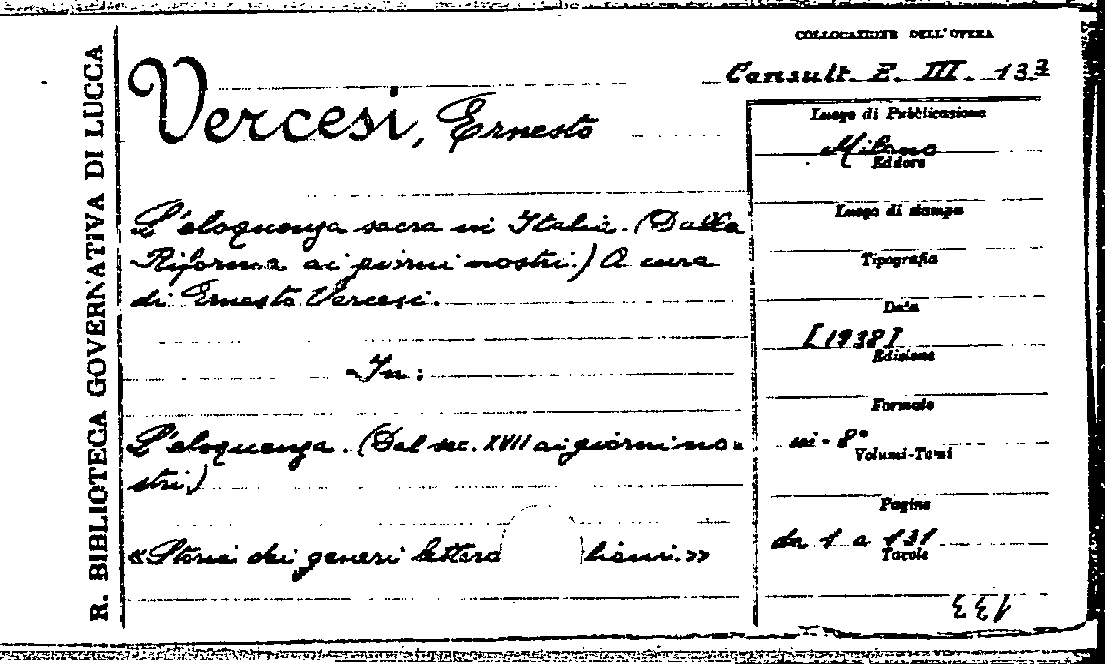 R. BIBLIOTECA GOVERNATIVA DI LUCCA
COLLOCAZIONE DELL'OPERA
Consult. E. III. 133
Vercesi, Ernesto
L'eloquenza sacra in Italia. (Dalla
Riforma ai giorni nostri.) A cura
di Ernesto Vercesi.
In:
L'eloquenza. (Dal sec. XVII ai giorni no=
stri.)
«Storia dei generi lettera liani.»
Luogo di Pubblicazione
Milano
Editore
Luogo di stampa
Tipografia
Data
[1938]
Edizione
Formato
in-8°
Volumi-Tomi
Pagine
da 1 a 131
Tavole
133